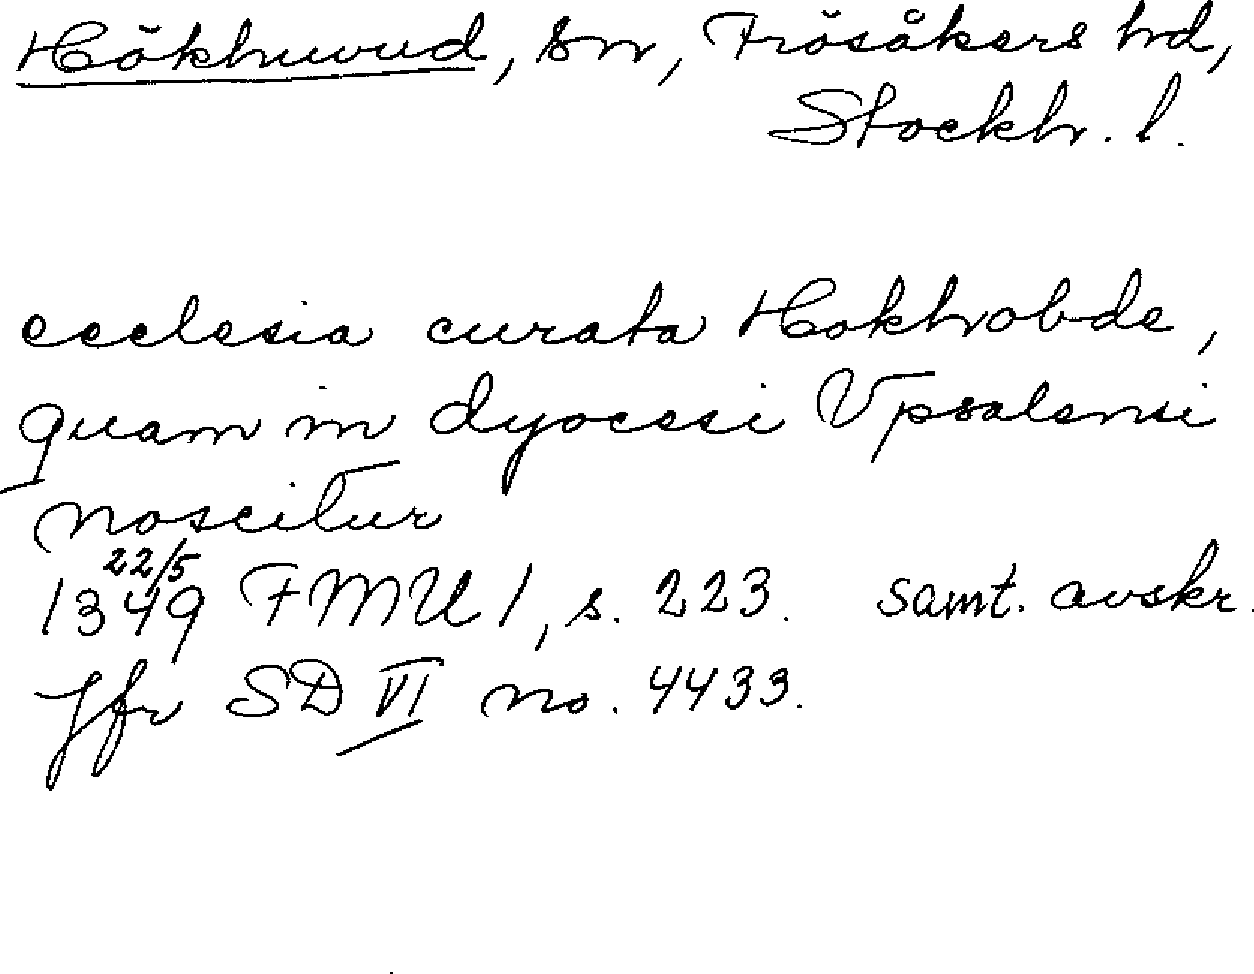 Hökhuvud, sn, Frösåkers hd,
Stockh. l.
ecclesia curata Hokhobde,
quam in dyocesi Vpsalensi
noscitur
22/5
1349 FMU 1, s. 223. samt. avskr.
Jfr SD VI no. 4433.